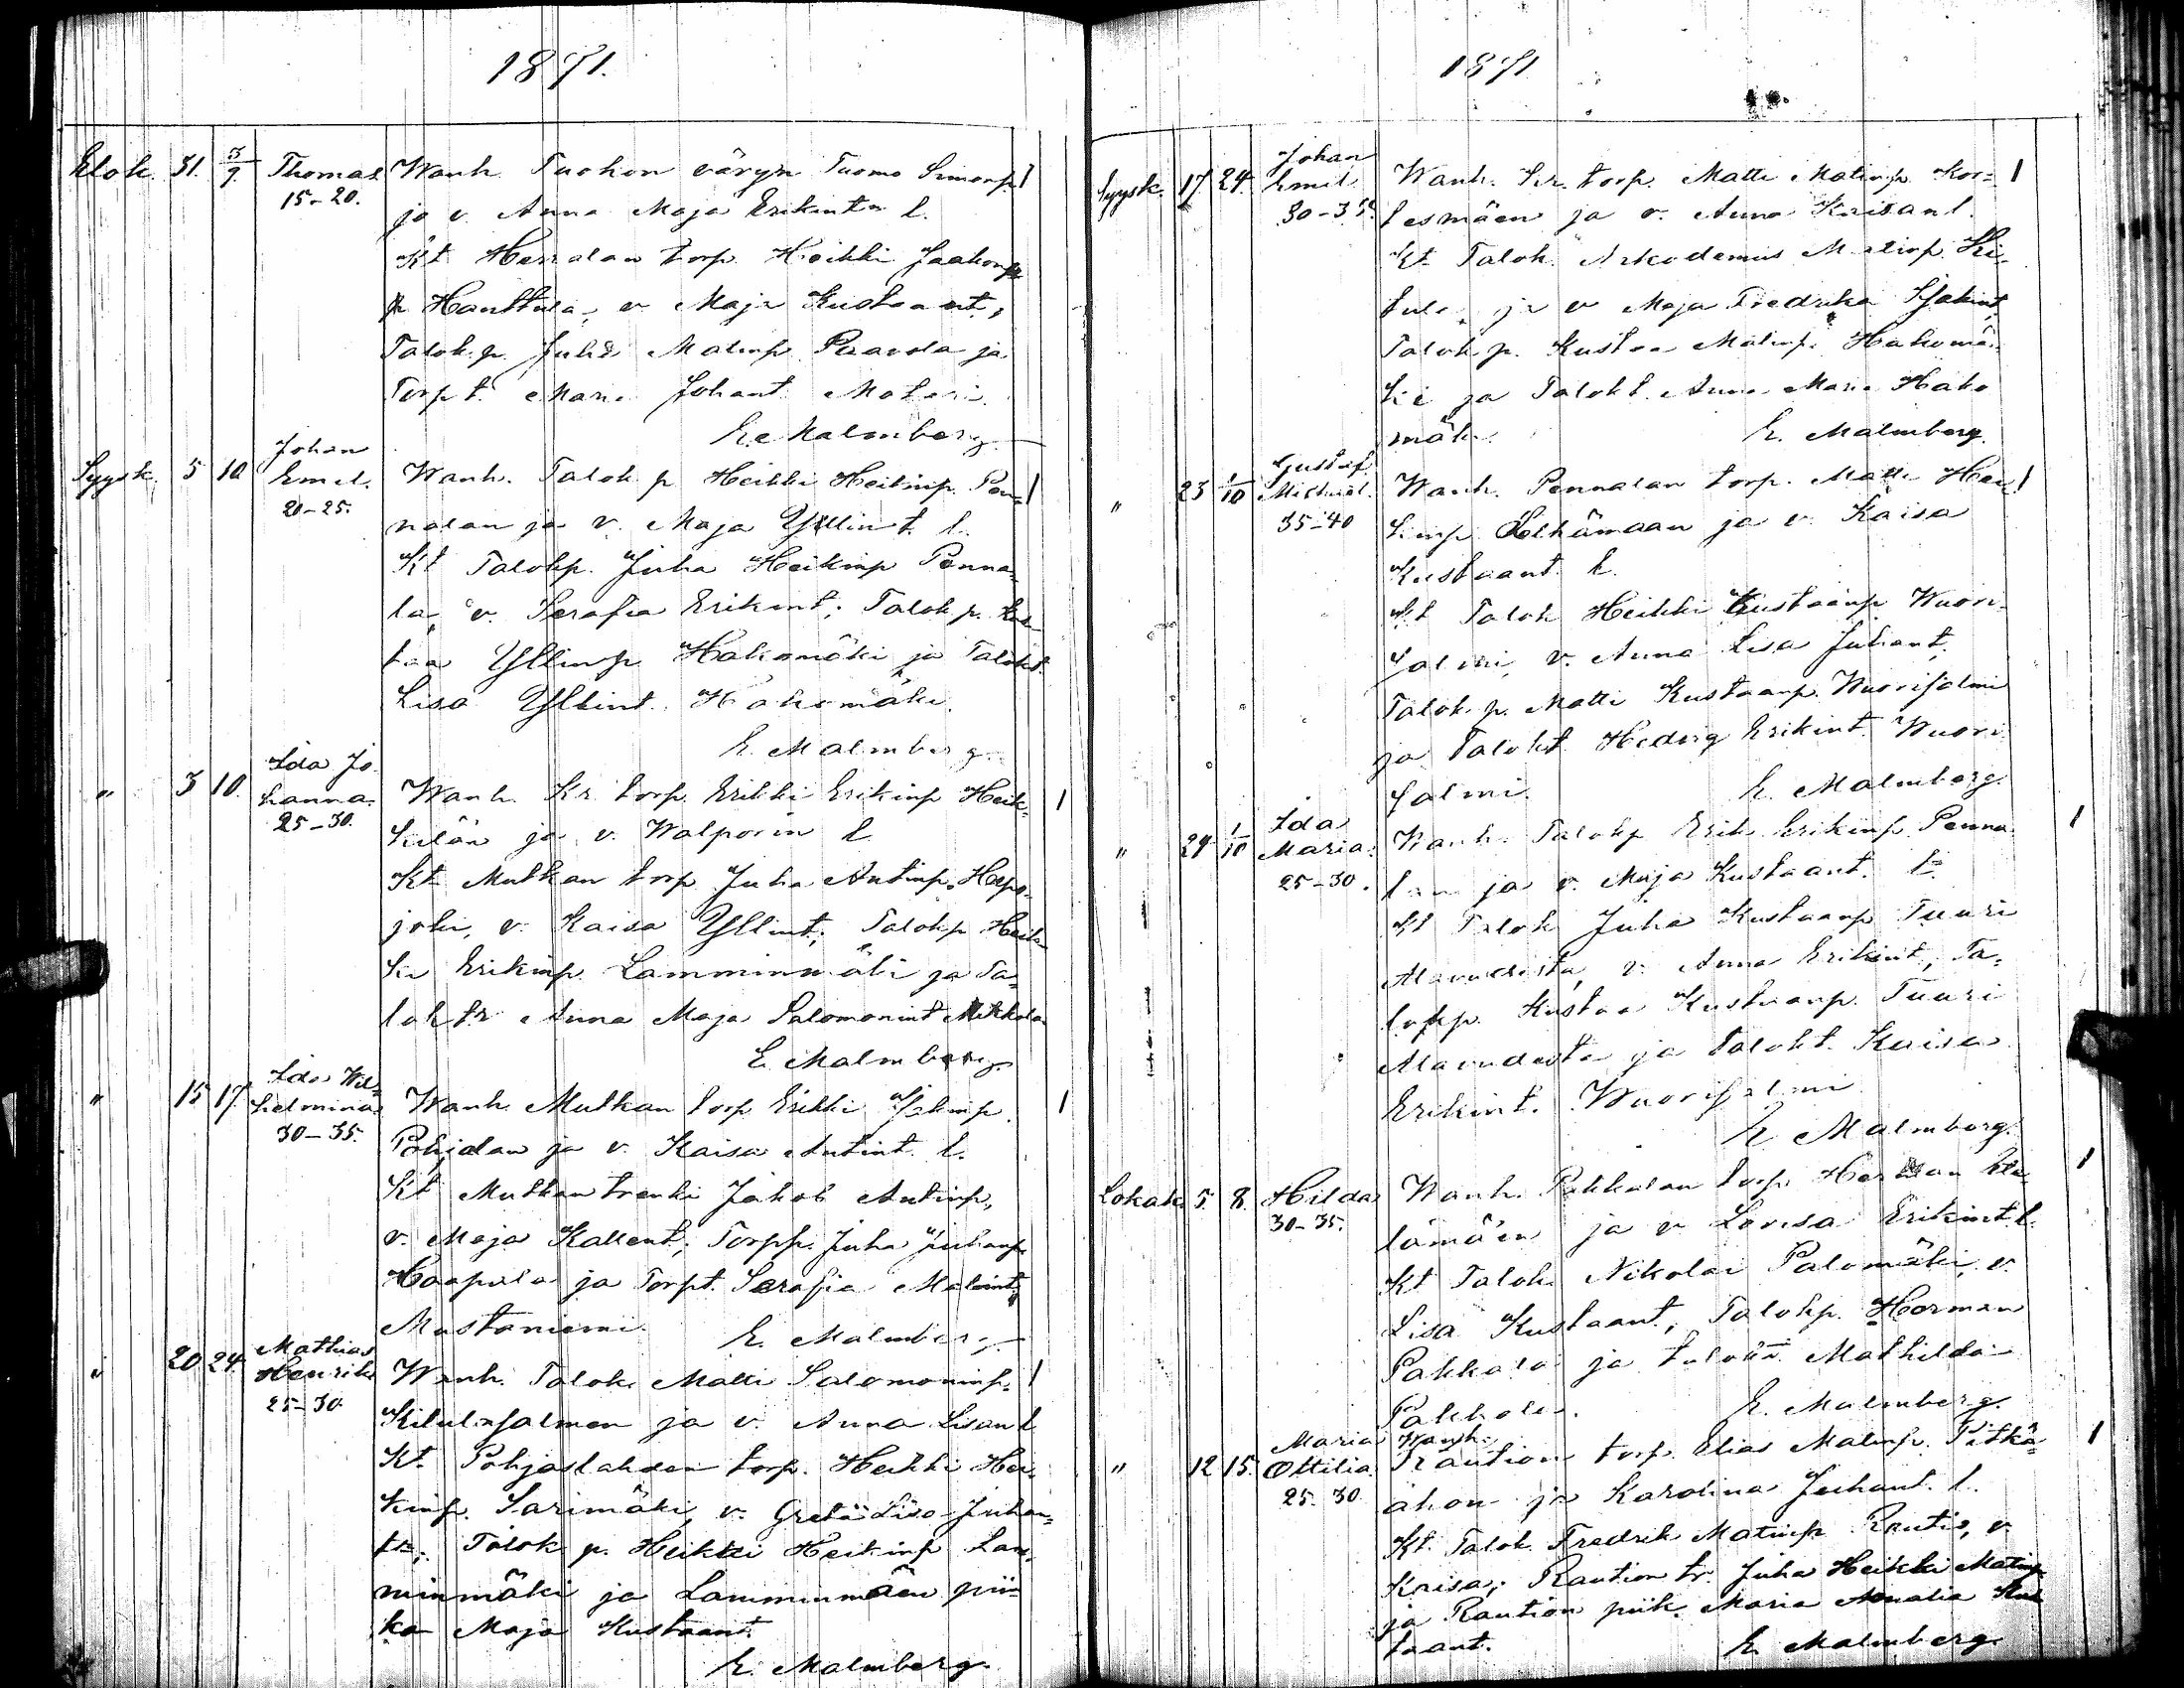 1871.
Elok. 31. 3/9. Thomas Wanh. Tuohon väryn Tuomo Simonp.
15-20. ja v. Anna Maja Erikintn l.
Kt Herralan torp. Heikki Jaakonp
Hanttula, v Maja Kustaant,
Talok.p. Juho Matinp. Paavola ja
Torp t. Maria Johant.
E. Malmberg.
Johan
Syysk. 5 10 Emil. Wanh. Talok p Heikki Heikinp. Pen-
20-25. nalan ja v. Maja Yllint. l.
Kt Talokp. Juha Heikinp Penna-
la, v. Serafia Erikint; Talok p. Kus-
taa Yllinp Hakomäki ja Talokt.
Lisa Yllint. Hakomäki.
E. Malmberg.
Ida Jo-
" 3 10. hanna. Wanh. Kr. torp. Erikki Erikinp Heik-
25-30. kilän ja v. Walporin l.
Kt Mutkan torp Juha Antinp. Hepo-
joki, v. Kaisa Yllint; Talokp Heik-
ki Erikinp. Lamminmäki ja Ta-
lokt Anna Maja Salomonint Mikkola
E. Malmberg.
Ida Wil-
" 15 17. helmina Wanh. Mutkan torp Erikki
30-35. Pohjolan ja v. Kaisa Antint. l.
Kt Mutkan trenki Jakob Antinp,
v. Maja Kallent; Torpp. Juha Juhanp
Haapala ja Torpt. Serafia Matint.
Mustaniemi. E. Malmberg.
Mathias
" 20 24. Henrik Wanh. Talok. Matti Salomoninp.
25-30. Kitulasalmen ja v. Anna Lisan l
Kt. Pohjaslahden torp. Heikki Hei-
kinp. Sarimäki, v. Greta Lisa Juhan-
tr; Talok p. Heikki Heikinp Lam-
minmäki ja Lamminmäen pii-
ka Maja Kustaant.
E. Malmberg.
1871
Johan
Syysk. 17. 24. Emil Wanh. Kr. torp. Matti Matinp. Kor-
30-35. tesmäen ja v. Anna Kaisan l.
Kt. Talok. Arkademus Matinp. Ki-
tula, ja v Maja Fredrika
Talok p. Kustaa Matinp. Hakomä-
ki ja Talokt. Anna Maria Hako
mäki. E. Malmberg.
Gustaf
" 23 1/10 Michael. Wanh. Pennalan torp. Matti Hei-
35-40 kinp. ja v. Kaisa
Kustaant. l.
Kt Talok Heikki Kustaanp Wuori-
salmi, v. Anna Lisa Juhant,
Talok. p. Matti Kustaanp. Wuorisalmi
ja Talokt. Hedvig Erikint. Wuori-
salmi. E. Malmberg.
Ida
" 29 1/10 Maria. Wanh. Talokp Erik Erikinp Penna
25-30. lan ja v. Maja Kustaant. l.
Kt Talok Juha Kustaanp Tuuri
Alavudesta, v. Anna Erikint, Ta-
lokp. Kustaa Kustaanp. Tuuri
Alavudesta ja talokt. Kaisa
Erikint. Wuorisalmi
E. Malmberg.
Lokak. 5. 8. Hilda Wanh. Pakkalan torp. Herman
30-35. lämäen ja v Lovisa Erikint l.
Kt Talok. Nikolai Palomäki, v.
Lisa Kustaant; Talokp. Herman
Pakkala ja Mathilda
Pakkala. E. Malmberg.
Maria Wanh.
" 12 15. Ottilia. Raution torp. Elias Matinp. Pitkä-
25-30. ahon ja Karolina Juhant. l.
Kt. Talok Fredrik Matinp Rautio, v.
Kaisa; Raution tr. Juha Heikki Matinp
ja Raution piik. Maria Amalia Kus
taant. E. Malmberg.